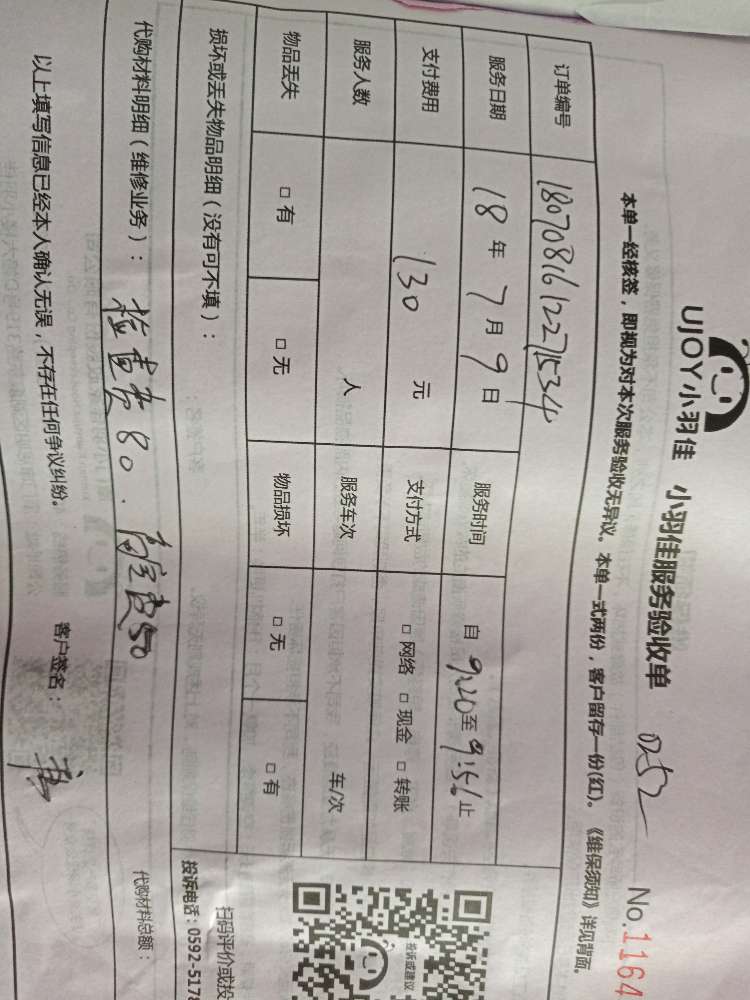 UJOY小羽佳 小羽佳服务验收单 0252 No.1164
本单一经核签，即视为对本次服务验收无异议。本单一式两份，客户留存一份(红)。《维保须知》详见背面。
订单编号 180708161227534
服务日期 18年7月9日 服务时间 自9:20至9:56止
支付费用 130元 支付方式 □网络 □现金 □转账
服务人数 人 服务车次 车/次
物品丢失 □有 □无 物品损坏 □无 □有
损坏或丢失物品明细（没有可不填）：
投诉或建议
扫码评价或投
投诉电话：0592-5178
代购材料明细（维修业务）：检查费80. 高空费50
代购材料总额：
以上填写信息已经本人确认无误，不存在任何争议纠纷。 客户签名：